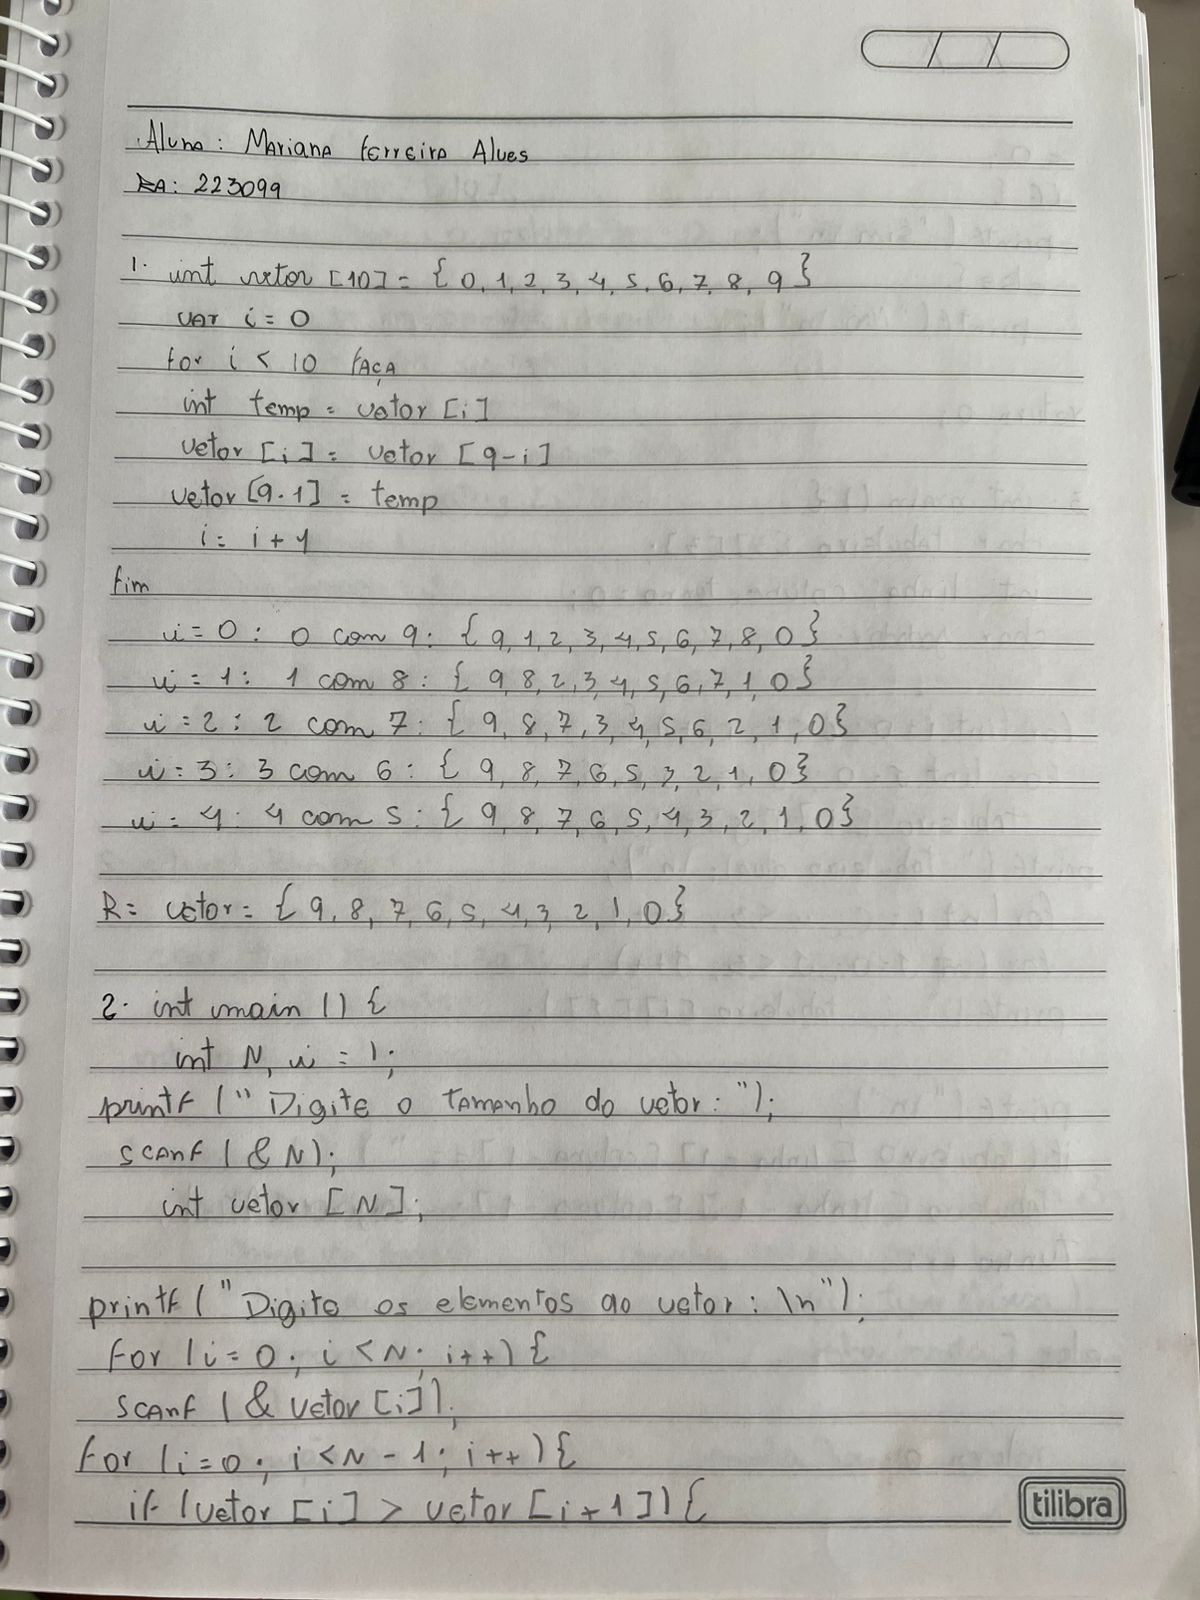 Aluna: Mariana Ferreira Alves
RA: 223099
1. int vetor [10] = { 0, 1, 2, 3, 4, 5, 6, 7, 8, 9 }
var i = 0
for i < 10 faça
int temp = vetor [i]
vetor [i] = vetor [9-i]
vetor [9-1] = temp
i = i + 1
fim
i = 0 : 0 com 9 : { 9, 1, 2, 3, 4, 5, 6, 7, 8, 0 }
i = 1 : 1 com 8 : { 9, 8, 2, 3, 4, 5, 6, 7, 1, 0 }
i = 2 : 2 com 7 : { 9, 8, 7, 3, 4, 5, 6, 2, 1, 0 }
i = 3 : 3 com 6 : { 9, 8, 7, 6, 5, 3, 2, 1, 0 }
i = 4 : 4 com 5 : { 9, 8, 7, 6, 5, 4, 3, 2, 1, 0 }
R = vetor = { 9, 8, 7, 6, 5, 4, 3, 2, 1, 0 }
2. int main () {
int N, i = 1;
printf (" Digite o tamanho do vetor : ");
scanf ( & N);
int vetor [N];
printf (" Digito os elementos ao vetor : \n");
for (i = 0; i < N; i++) {
scanf ( & vetor [i]);
for (i = 0; i < N - 1; i++) {
if (vetor [i] > vetor [i+1]) {
tilibra